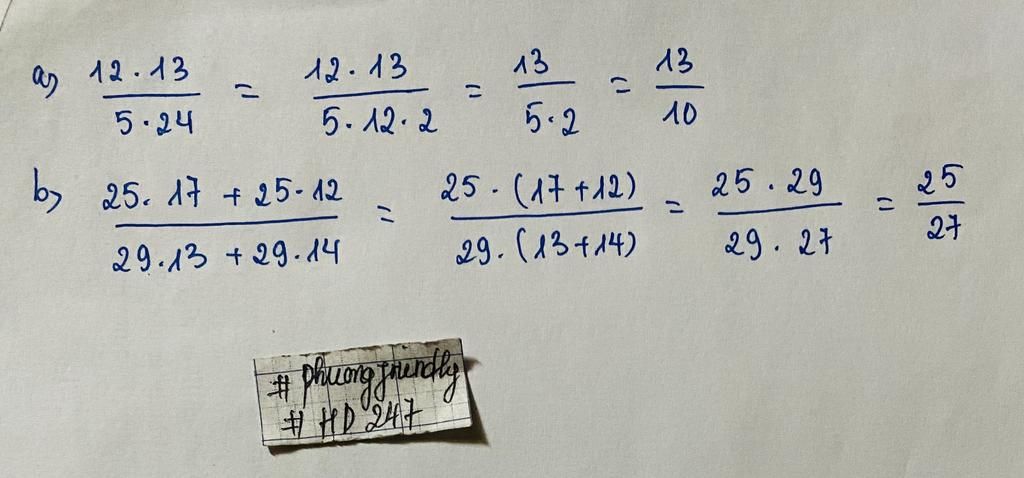 a) 12 · 13 / 5 · 24 = 12 · 13 / 5 · 12 · 2 = 13 / 5 · 2 = 13 / 10
b) 25 · 17 + 25 · 12 / 29 · 13 + 29 · 14 = 25 · (17 + 12) / 29 · (13 + 14) = 25 · 29 / 29 · 27 = 25 / 27
# phuongfriendly
# HD 247